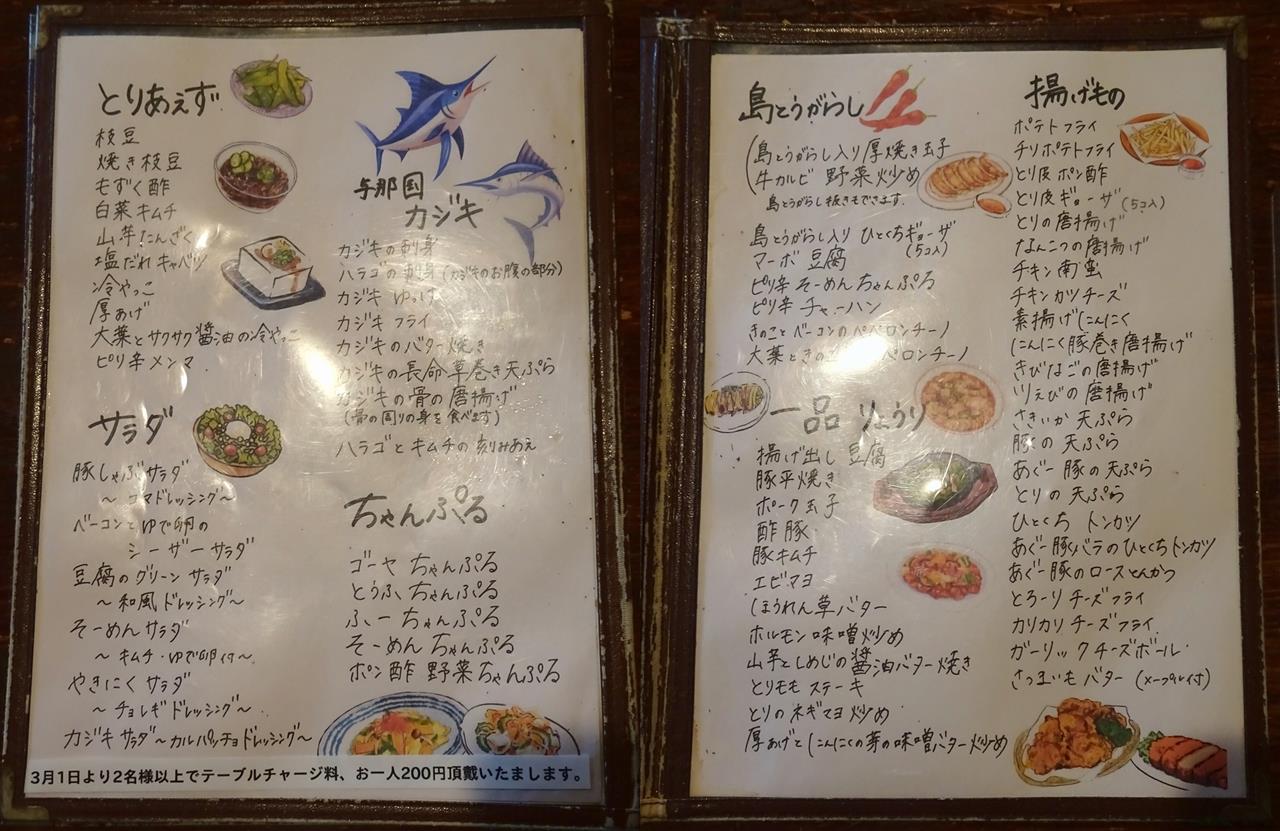 とりあえず
枝豆
焼き枝豆
もずく酢
白菜キムチ
山芋たんざく
塩だれキャベツ
冷やっこ
厚あげ
大葉とサクサク醤油の冷やっこ
ピリ辛メンマ
サラダ
豚しゃぶサラダ
～ゴマドレッシング～
ベーコンとゆで卵の
シーザーサラダ
豆腐のグリーンサラダ
～和風ドレッシング～
そーめんサラダ
～キムチ・ゆで卵付～
やきにくサラダ
～チョレギドレッシング～
カジキサラダ～カルパッチョドレッシング～
与那国
カジキ
カジキの刺身
ハラゴの刺身(カジキのお腹の部分)
カジキゆっけ
カジキフライ
カジキのバター焼き
カジキの長命草巻き天ぷら
カジキの骨の唐揚げ
(骨の周りの身を食べます)
ハラゴとキムチの刻みあえ
ちゃんぷる
ゴーヤちゃんぷる
とうふちゃんぷる
ふーちゃんぷる
そーめんちゃんぷる
ポン酢野菜ちゃんぷる
3月1日より2名様以上でテーブルチャージ料、お一人200円頂戴いたまします。
島とうがらし
島とうがらし入り厚焼き玉子
牛カルビ 野菜炒め
島とうがらし抜きもできます。
島とうがらし入り ひとくちギョーザ
(5コ入)
マーボ豆腐
ピリ辛そーめんちゃんぷる
ピリ辛チャーハン
きのことベーコンのペペロンチーノ
大葉ときのこ ペロンチーノ
一品りょうり
揚げ出し豆腐
豚平焼き
ポーク玉子
酢豚
豚キムチ
エビマヨ
ほうれん草バター
ホルモン味噌炒め
山芋としめじの醤油バター焼き
とりモモステーキ
とりのネギマヨ炒め
厚あげとにんにくの芽の味噌バター炒め
揚げもの
ポテトフライ
チリポテトフライ
とり皮ポン酢
とり皮ギョーザ(5コ入)
とりの唐揚げ
なんこつの唐揚げ
チキン南蛮
チキンカツチーズ
素揚げにんにく
にんにく豚巻き唐揚げ
きびなごの唐揚げ
川えびの唐揚げ
さきいか天ぷら
豚の天ぷら
あぐー豚の天ぷら
とりの天ぷら
ひとくちトンカツ
あぐー豚バラのひとくちトンカツ
あぐー豚のロースとんかつ
とろーりチーズフライ
カリカリチーズフライ
ガーリックチーズボール
さつまいもバター(メープル付)